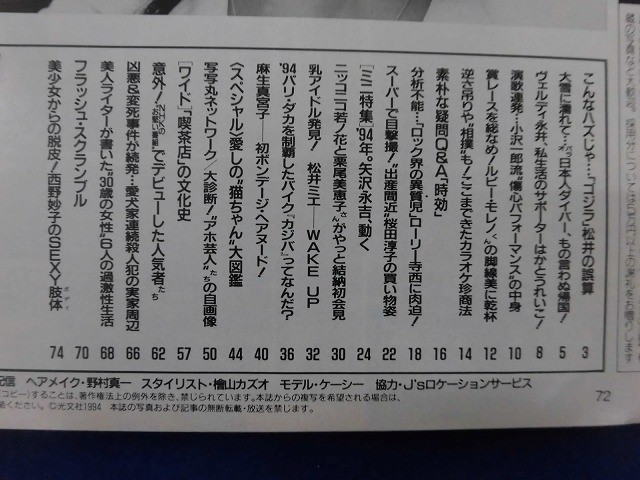 こんなハズじゃ…“ゴジラ”松井の誤算 3
大雪に濡れて…“日本人ダイバー、もの言わぬ帰国! 5
ヴェルディ永井・私生活のサポーターはかとうれいこ! 8
演歌連発…小沢一郎流“傷心パフォーマンス”の中身 10
賞レースを総なめ!ルビー・モレノくんの脚線美に乾杯 12
逆さ吊りや“相撲”も!ここまできたカラオケ珍商法 14
素朴な疑問Q&A「時効」 16
分析不能…「ロック界の異質児」ローリー寺西に肉迫! 18
スーパーで目撃!“出産間近”桜田淳子の買い物姿 22
[ミニ特集]'94年。矢沢永吉、動く 24
ニッコニコ若ノ花と栗尾美恵子さんがやっと結納初会見 30
乳アイドル発見! 松井ミエ——WAKE UP 32
'94パリ・ダカを制覇したバイク「カジバ」ってなんだ? 36
麻生真宮子——初ボンデージ・ヘアヌード! 40
〈スペシャル〉愛しの“猫ちゃん”大図鑑 44
写写丸ネットワーク/大診断!“アホ芸人”たちの自画像 50
[ワイド]「喫茶店」の文化史 57
意外!「SKIN」でデビューした人気者たち 62
凶悪&変死事件が続発…愛犬家連続殺人犯の実家周辺 66
美人ライターが書いた“30歳の女性”6人の過激性生活 68
フラッシュ・スクランブル 70
美少女からの脱皮!西野妙子のSEXY肢体ボディ 74
配信 ヘアメイク・野村真一 スタイリスト・檜山カズオ モデル・ケーシー 協力・J'sロケーションサービス
(コピー)することは、著作権法上の例外を除き、禁じられています。本誌からの複写を希望される場合は、
ください。©光文社1994 本誌の写真および記事の無断転載・放送を禁じます。
72